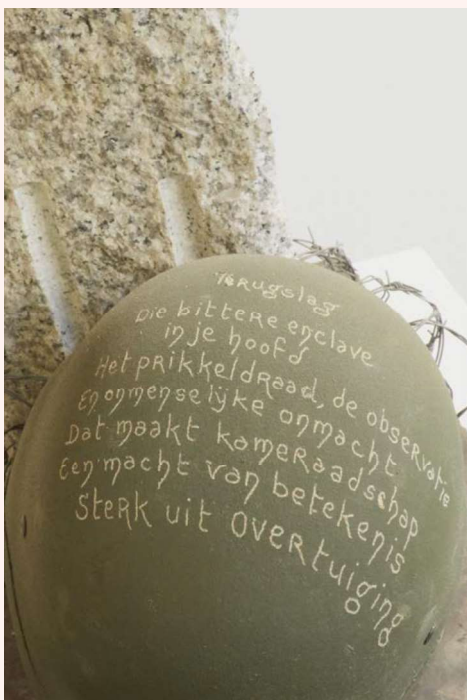 Terugslag
Die bittere enclave
in je hoofd
Het prikkeldraad, de observatie
En onmenselijke onmacht
Dat maakt kameraadschap
Een macht van betekenis
Sterk uit overtuiging